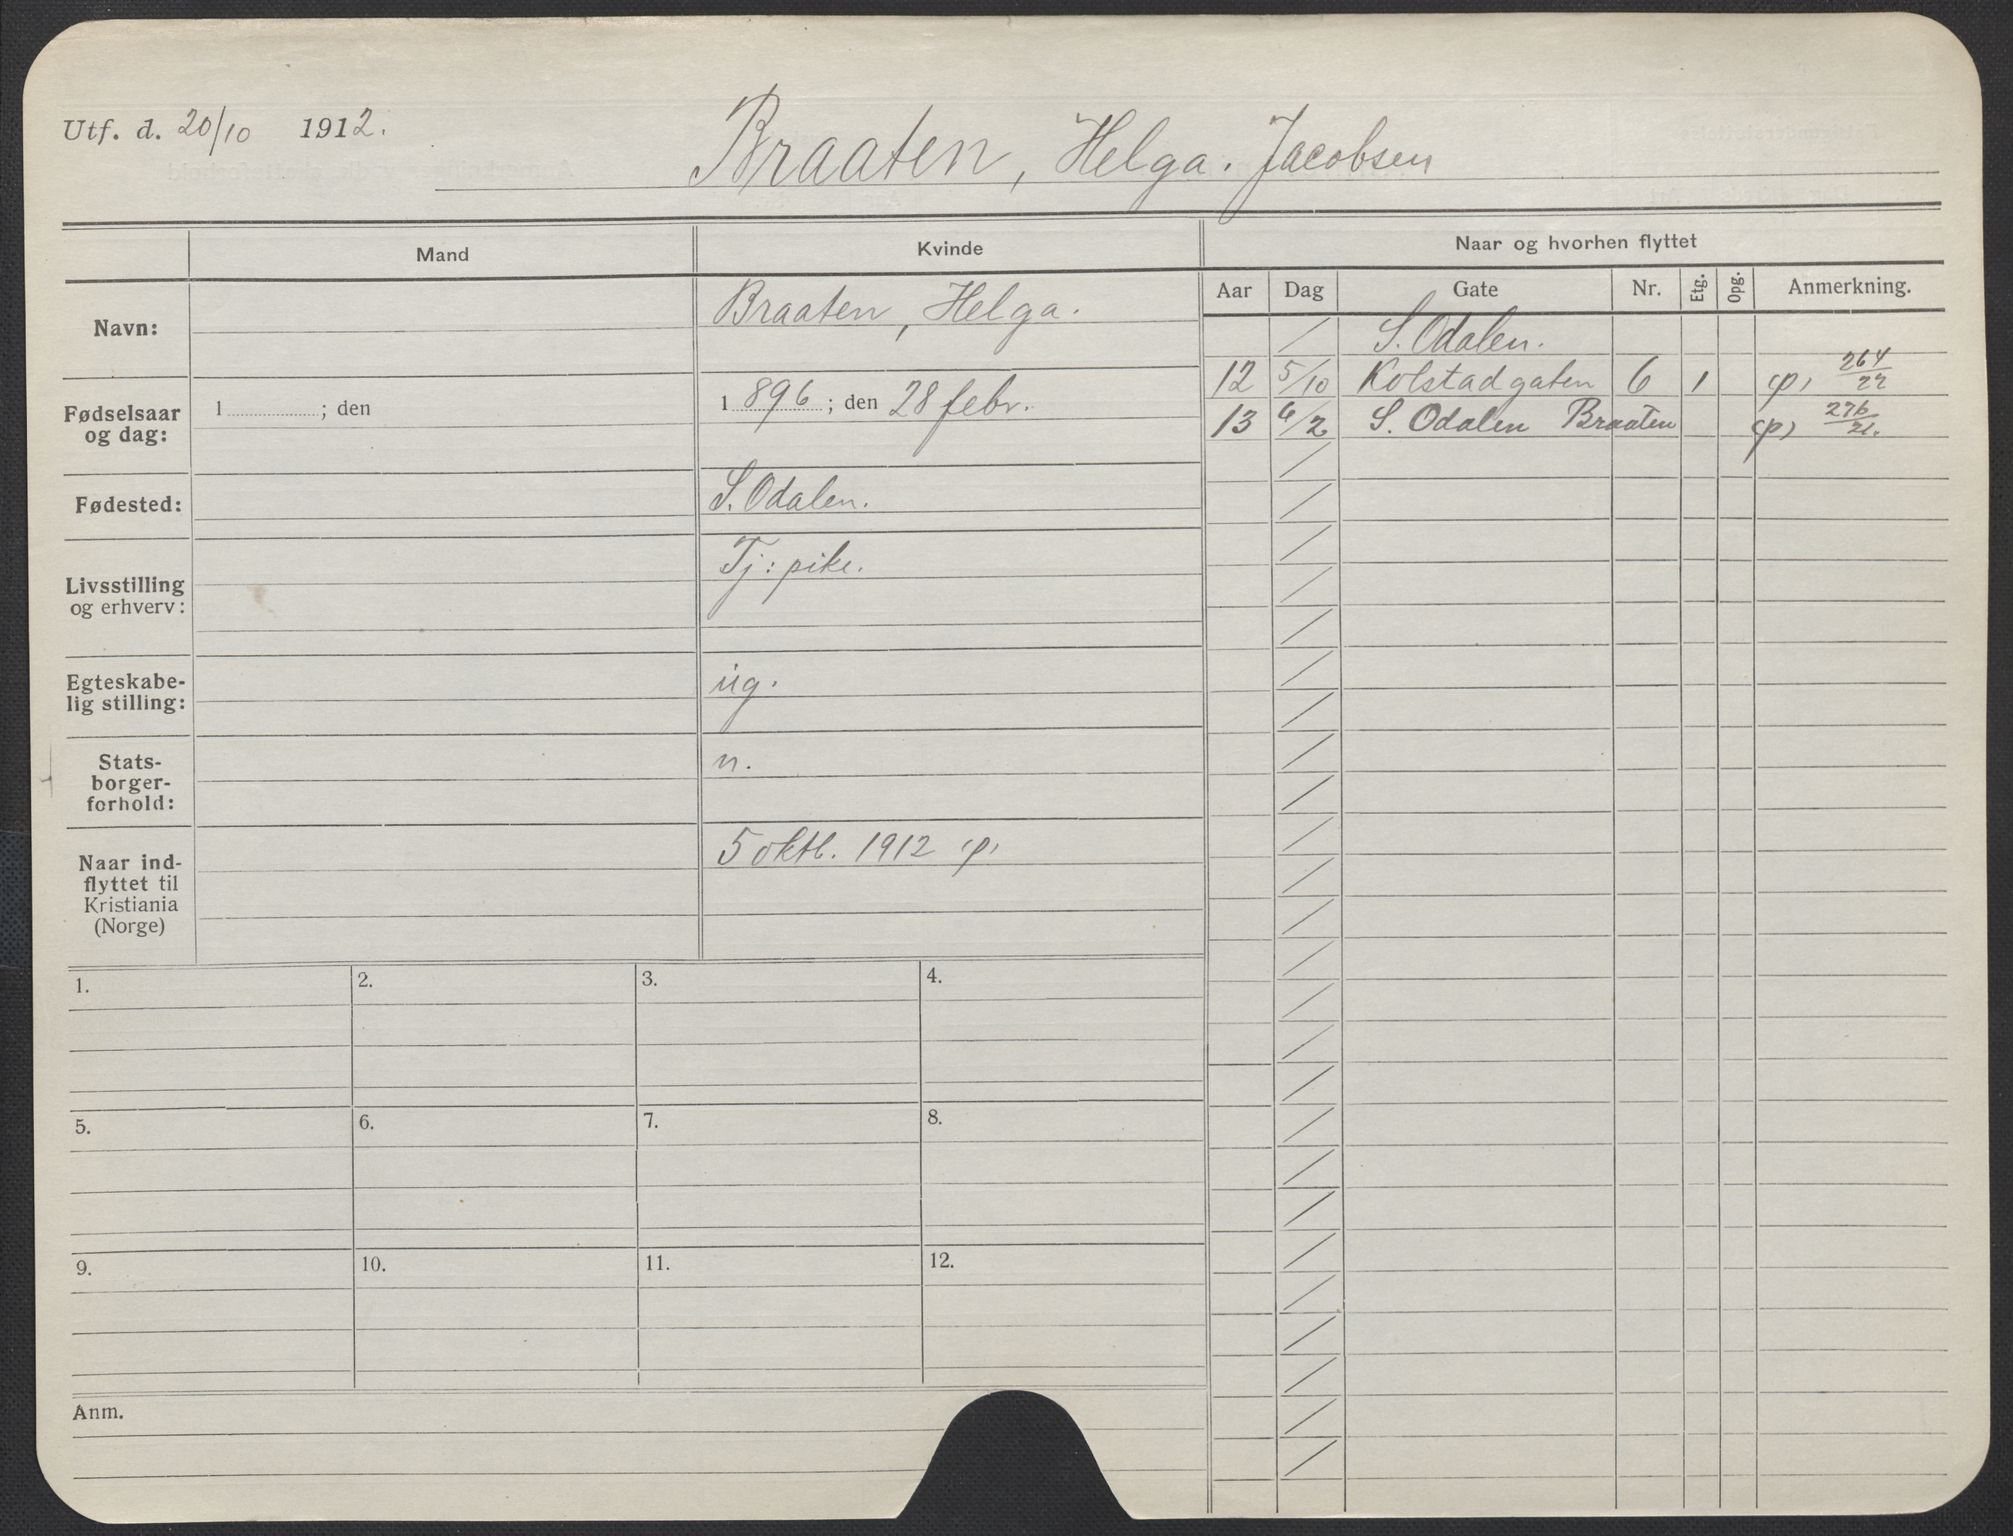 Utf. d. 20/10 1912.
Braaten, Helga. Jacobsen
Mand
Kvinde
Naar og hvorhen flyttet
Aar Dag Gate Nr. Etg. Opg. Anmerkning.
Navn:
Braaten, Helga.
Fødselsaar
og dag:
1 ; den
1896 ; den 28 febr.
Fødested:
S. Odalen.
Livsstilling
og erhverv:
Tj: pike.
Egteskabe-
lig stilling:
ug.
Stats-
borger-
forhold:
n.
Naar ind-
flyttet til
Kristiania
(Norge)
5 oktb. 1912 (p)
/ S. Odalen.
12 5/10 Kolstadgaten 6 1 (p) 264/22
13 6/2 S. Odalen Braaten (p) 276/21.
1. 2. 3. 4.
5. 6. 7. 8.
9. 10. 11. 12.
Anm.